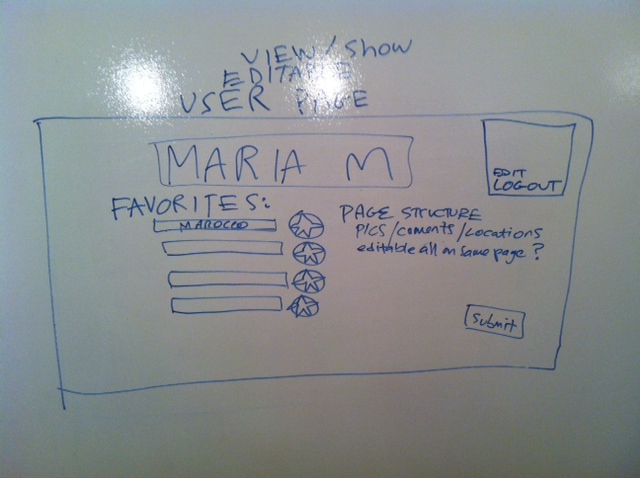 VIEW/Show
EDITABLE
USER PAGE
MARIA M
EDIT
LOGOUT
FAVORITES:
MAROCCO
PAGE STRUCTURE
PICS/COMENTS/LOCATIONS
editable all on same page?
Submit